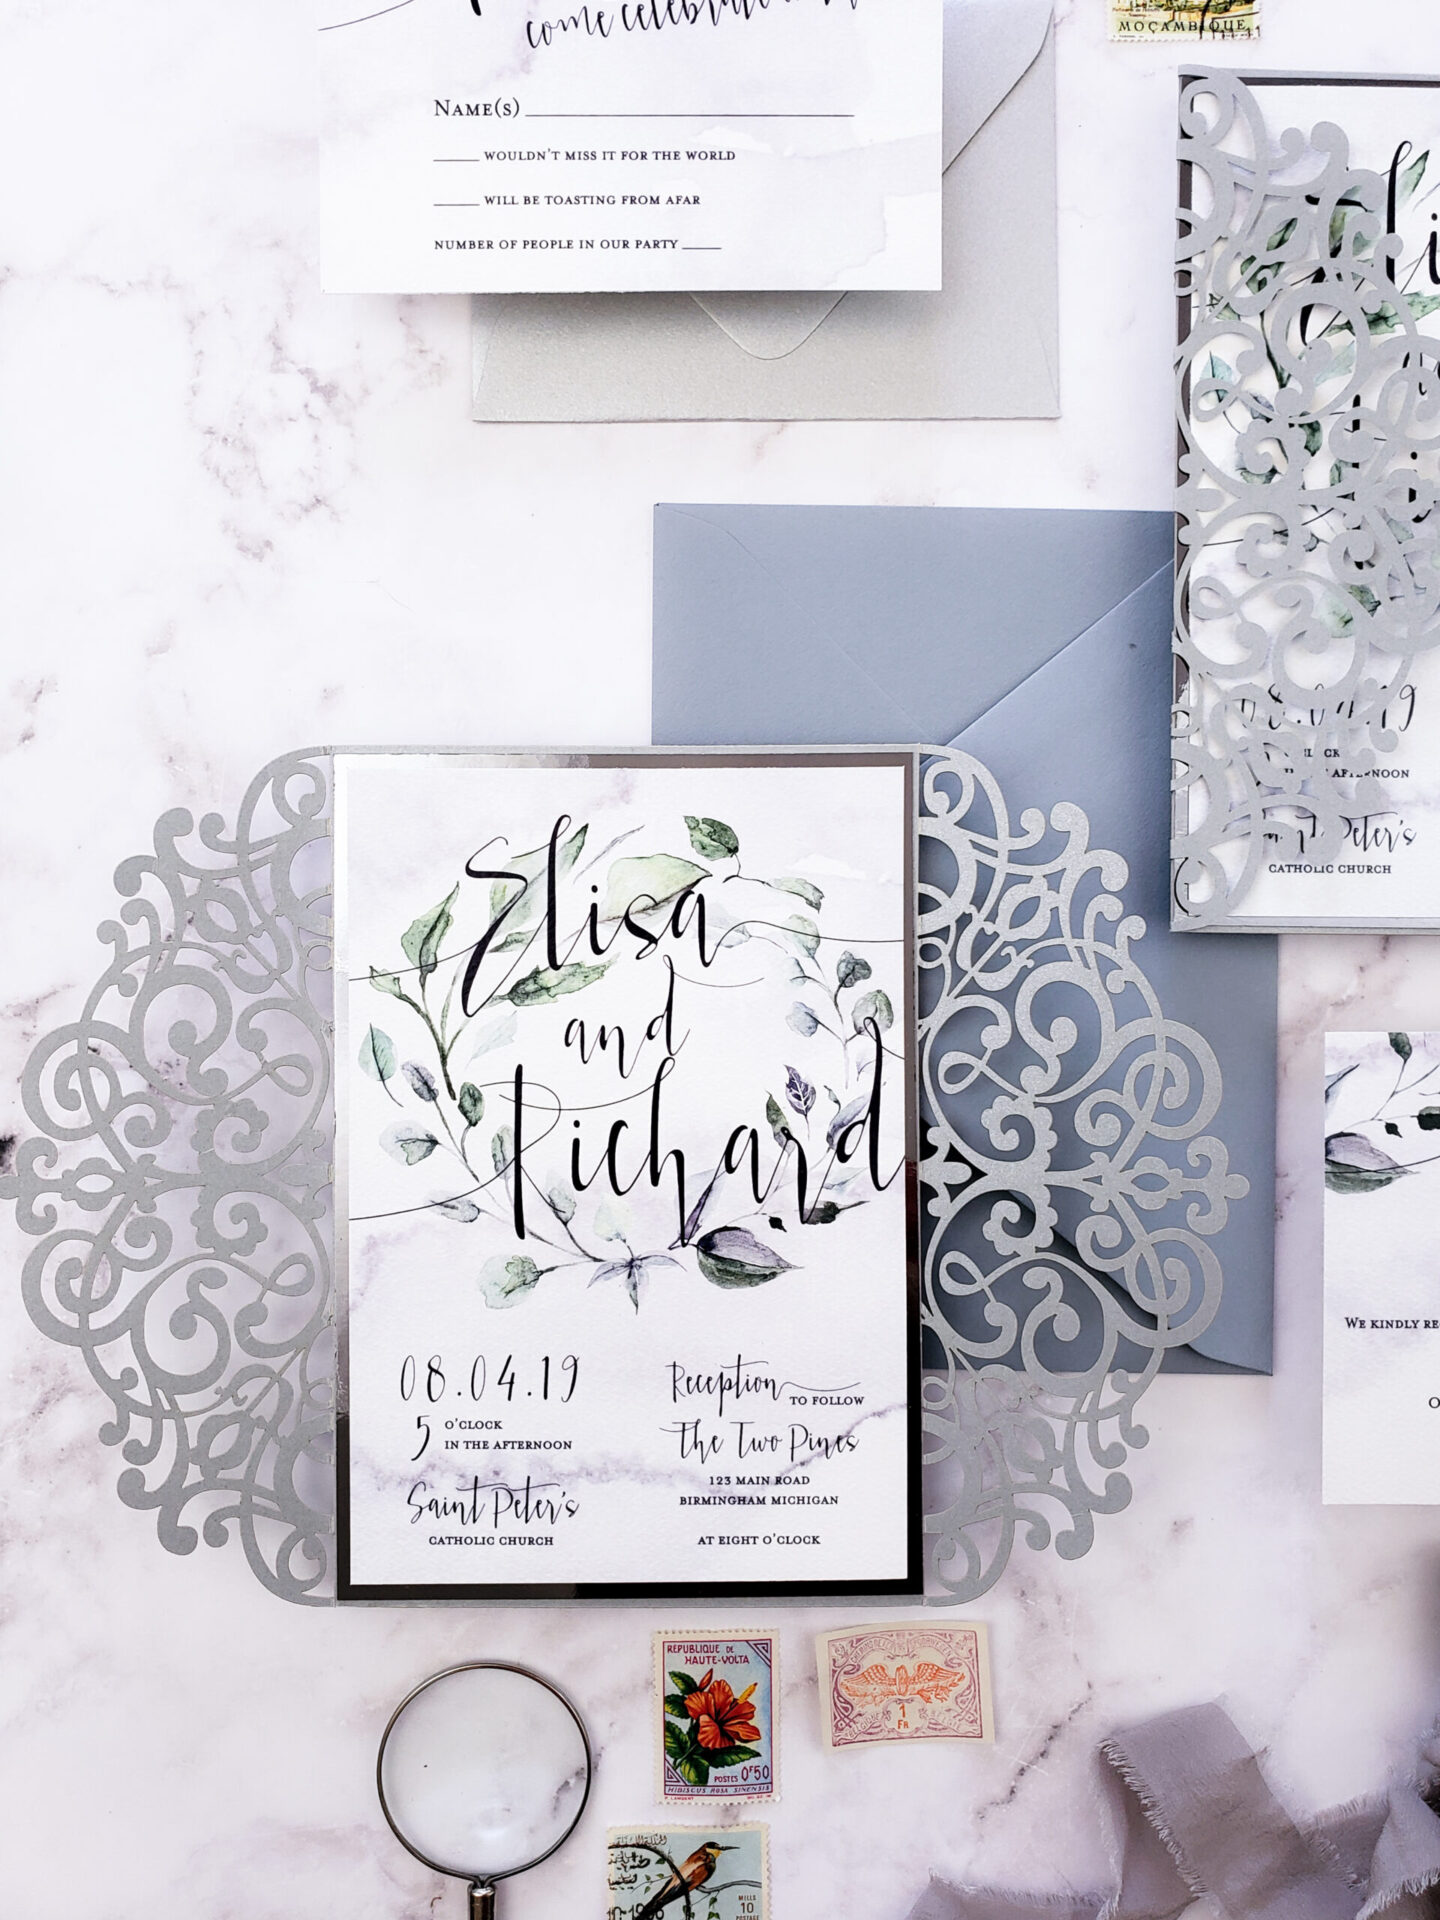 come celebrate
MOÇAMBIQUE
NAME(S)
WOULDN'T MISS IT FOR THE WORLD
WILL BE TOASTING FROM AFAR
NUMBER OF PEOPLE IN OUR PARTY
Elisa
and
Richard
08.04.19
5 O'CLOCK
IN THE AFTERNOON
Saint Peter's
CATHOLIC CHURCH
Reception TO FOLLOW
The Two Pines
123 MAIN ROAD
BIRMINGHAM MICHIGAN
AT EIGHT O'CLOCK
Peter's
CATHOLIC CHURCH
WE KINDLY RE
REPUBLIQUE DE
HAUTE-VOLTA
POSTES 0F50
HIBISCUS ROSA SINENSIS
1
FR
MILLS
10
POSTAGE